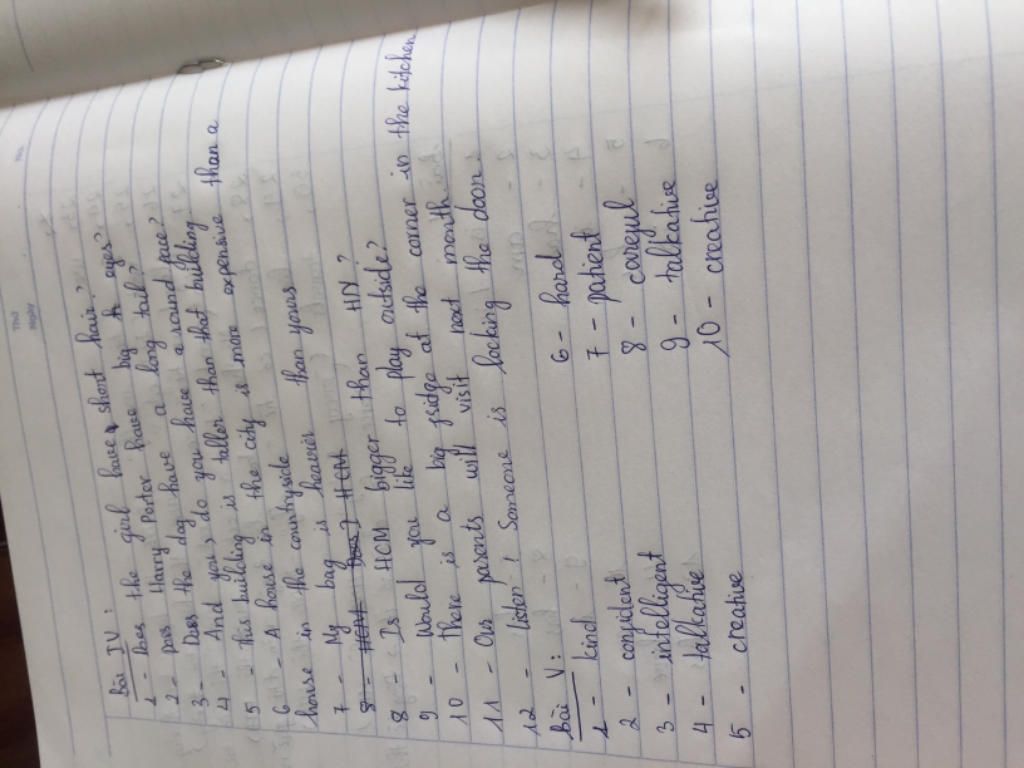 Thứ
Ngày
No.
Bài IV:
1 - Does the girl have short hair?
2 - Does Harry Porter have big eyes?
3 - Does the dog have a long tail?
4 - And you, do you have a round face?
5 - This building is taller than that building
6 - A house in the city is more expensive than a
house in the countryside
7 - My bag is heavier than yours
8 - Is HCM bigger than HN?
9 - Would you like to play outside?
10 - There is a big fridge at the corner in the kitchen
11 - Our perents will visit next month
12 - Listen! Someone is locking the door
Bài V:
1 - kind
2 - confident
3 - intelligent
4 - talkative
5 - creative
6 - hard
7 - patient
8 - careful
9 - talkative
10 - creative